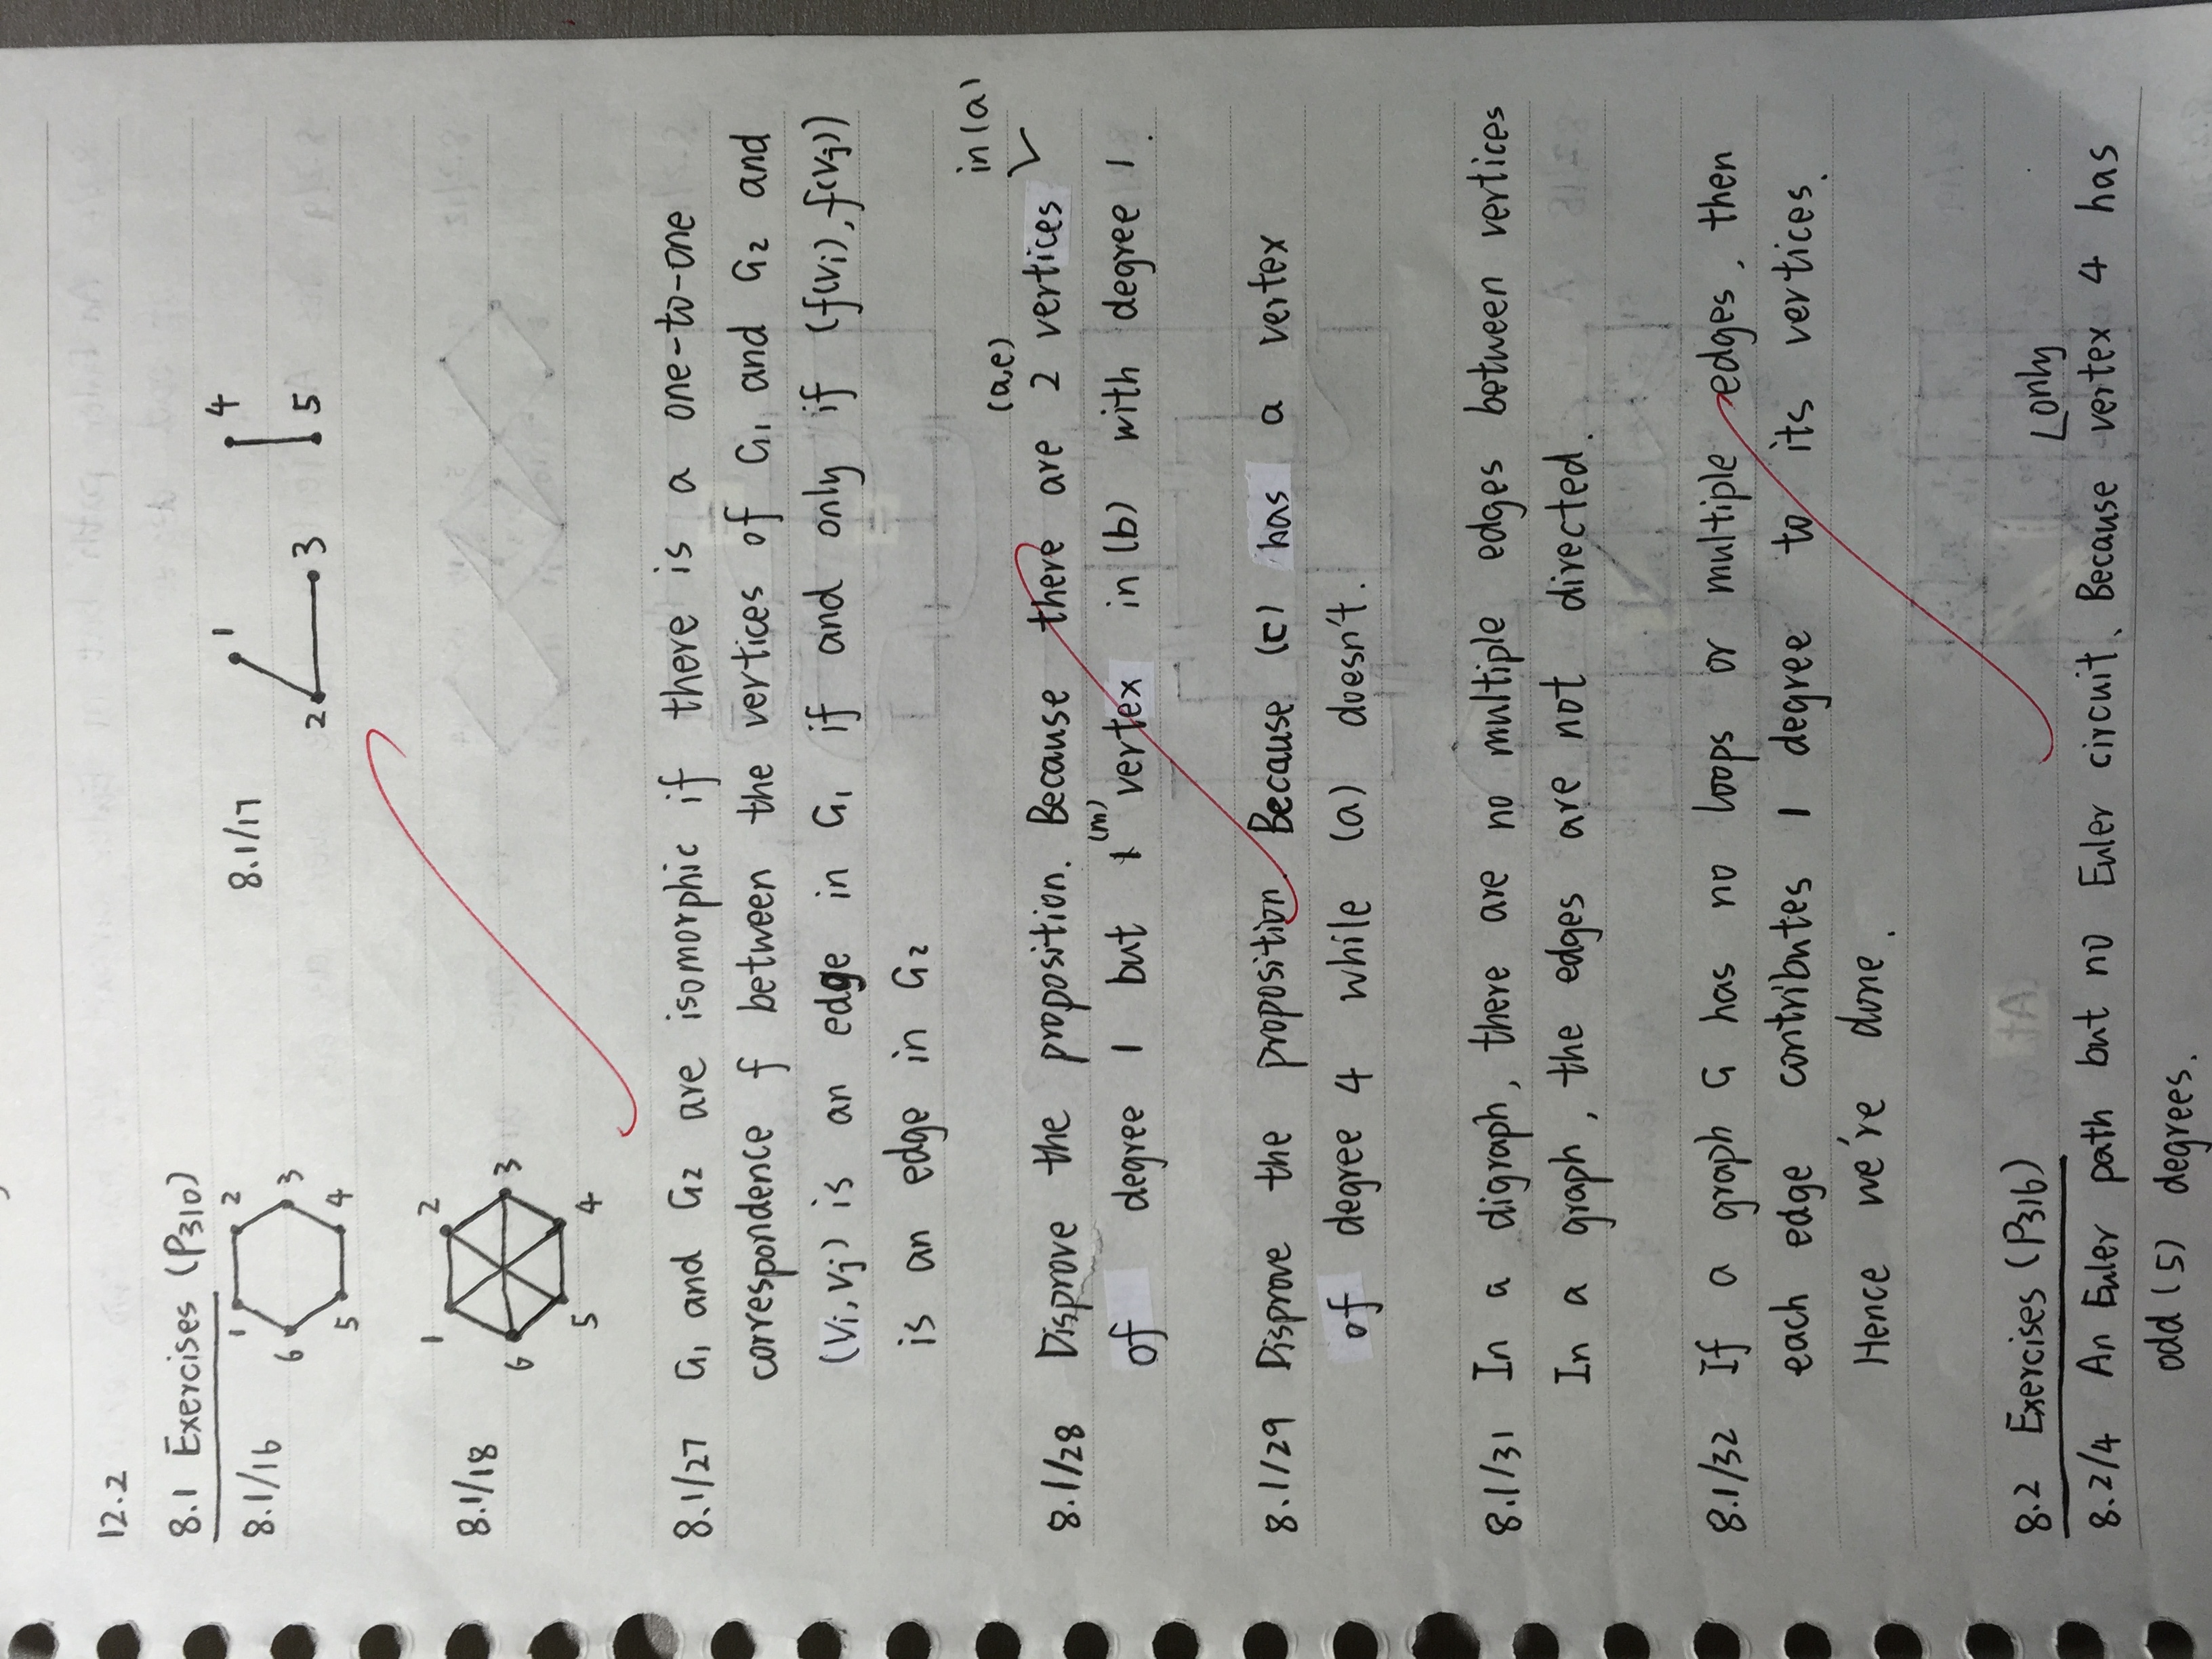 12.2
8.1 Exercises (P310)
8.1/16 1 2 3 4 5 6
8.1/17 1 2 3 4 5
8.1/18 1 2 3 4 5 6
8.1/27 G1 and G2 are isomorphic if there is a one-to-one
correspondence f between the vertices of G1 and G2 and
(Vi, Vj) is an edge in G1 if and only if (f(Vi), f(Vj))
is an edge in G2
(a,e) in (a)
8.1/28 Disprove the proposition. Because there are 2 vertices
of degree 1 but 1 (m) vertex in (b) with degree 1.
8.1/29 Disprove the proposition. Because (c) has a vertex
of degree 4 while (a) doesn't.
8.1/31 In a digraph, there are no multiple edges between vertices
In a graph, the edges are not directed.
8.1/32 If a graph G has no loops or multiple edges, then
each edge contributes 1 degree to its vertices.
Hence we're done.
8.2 Exercises (P316)
only
8.2/4 An Euler path but no Euler circuit. Because vertex 4 has
odd (5) degrees.